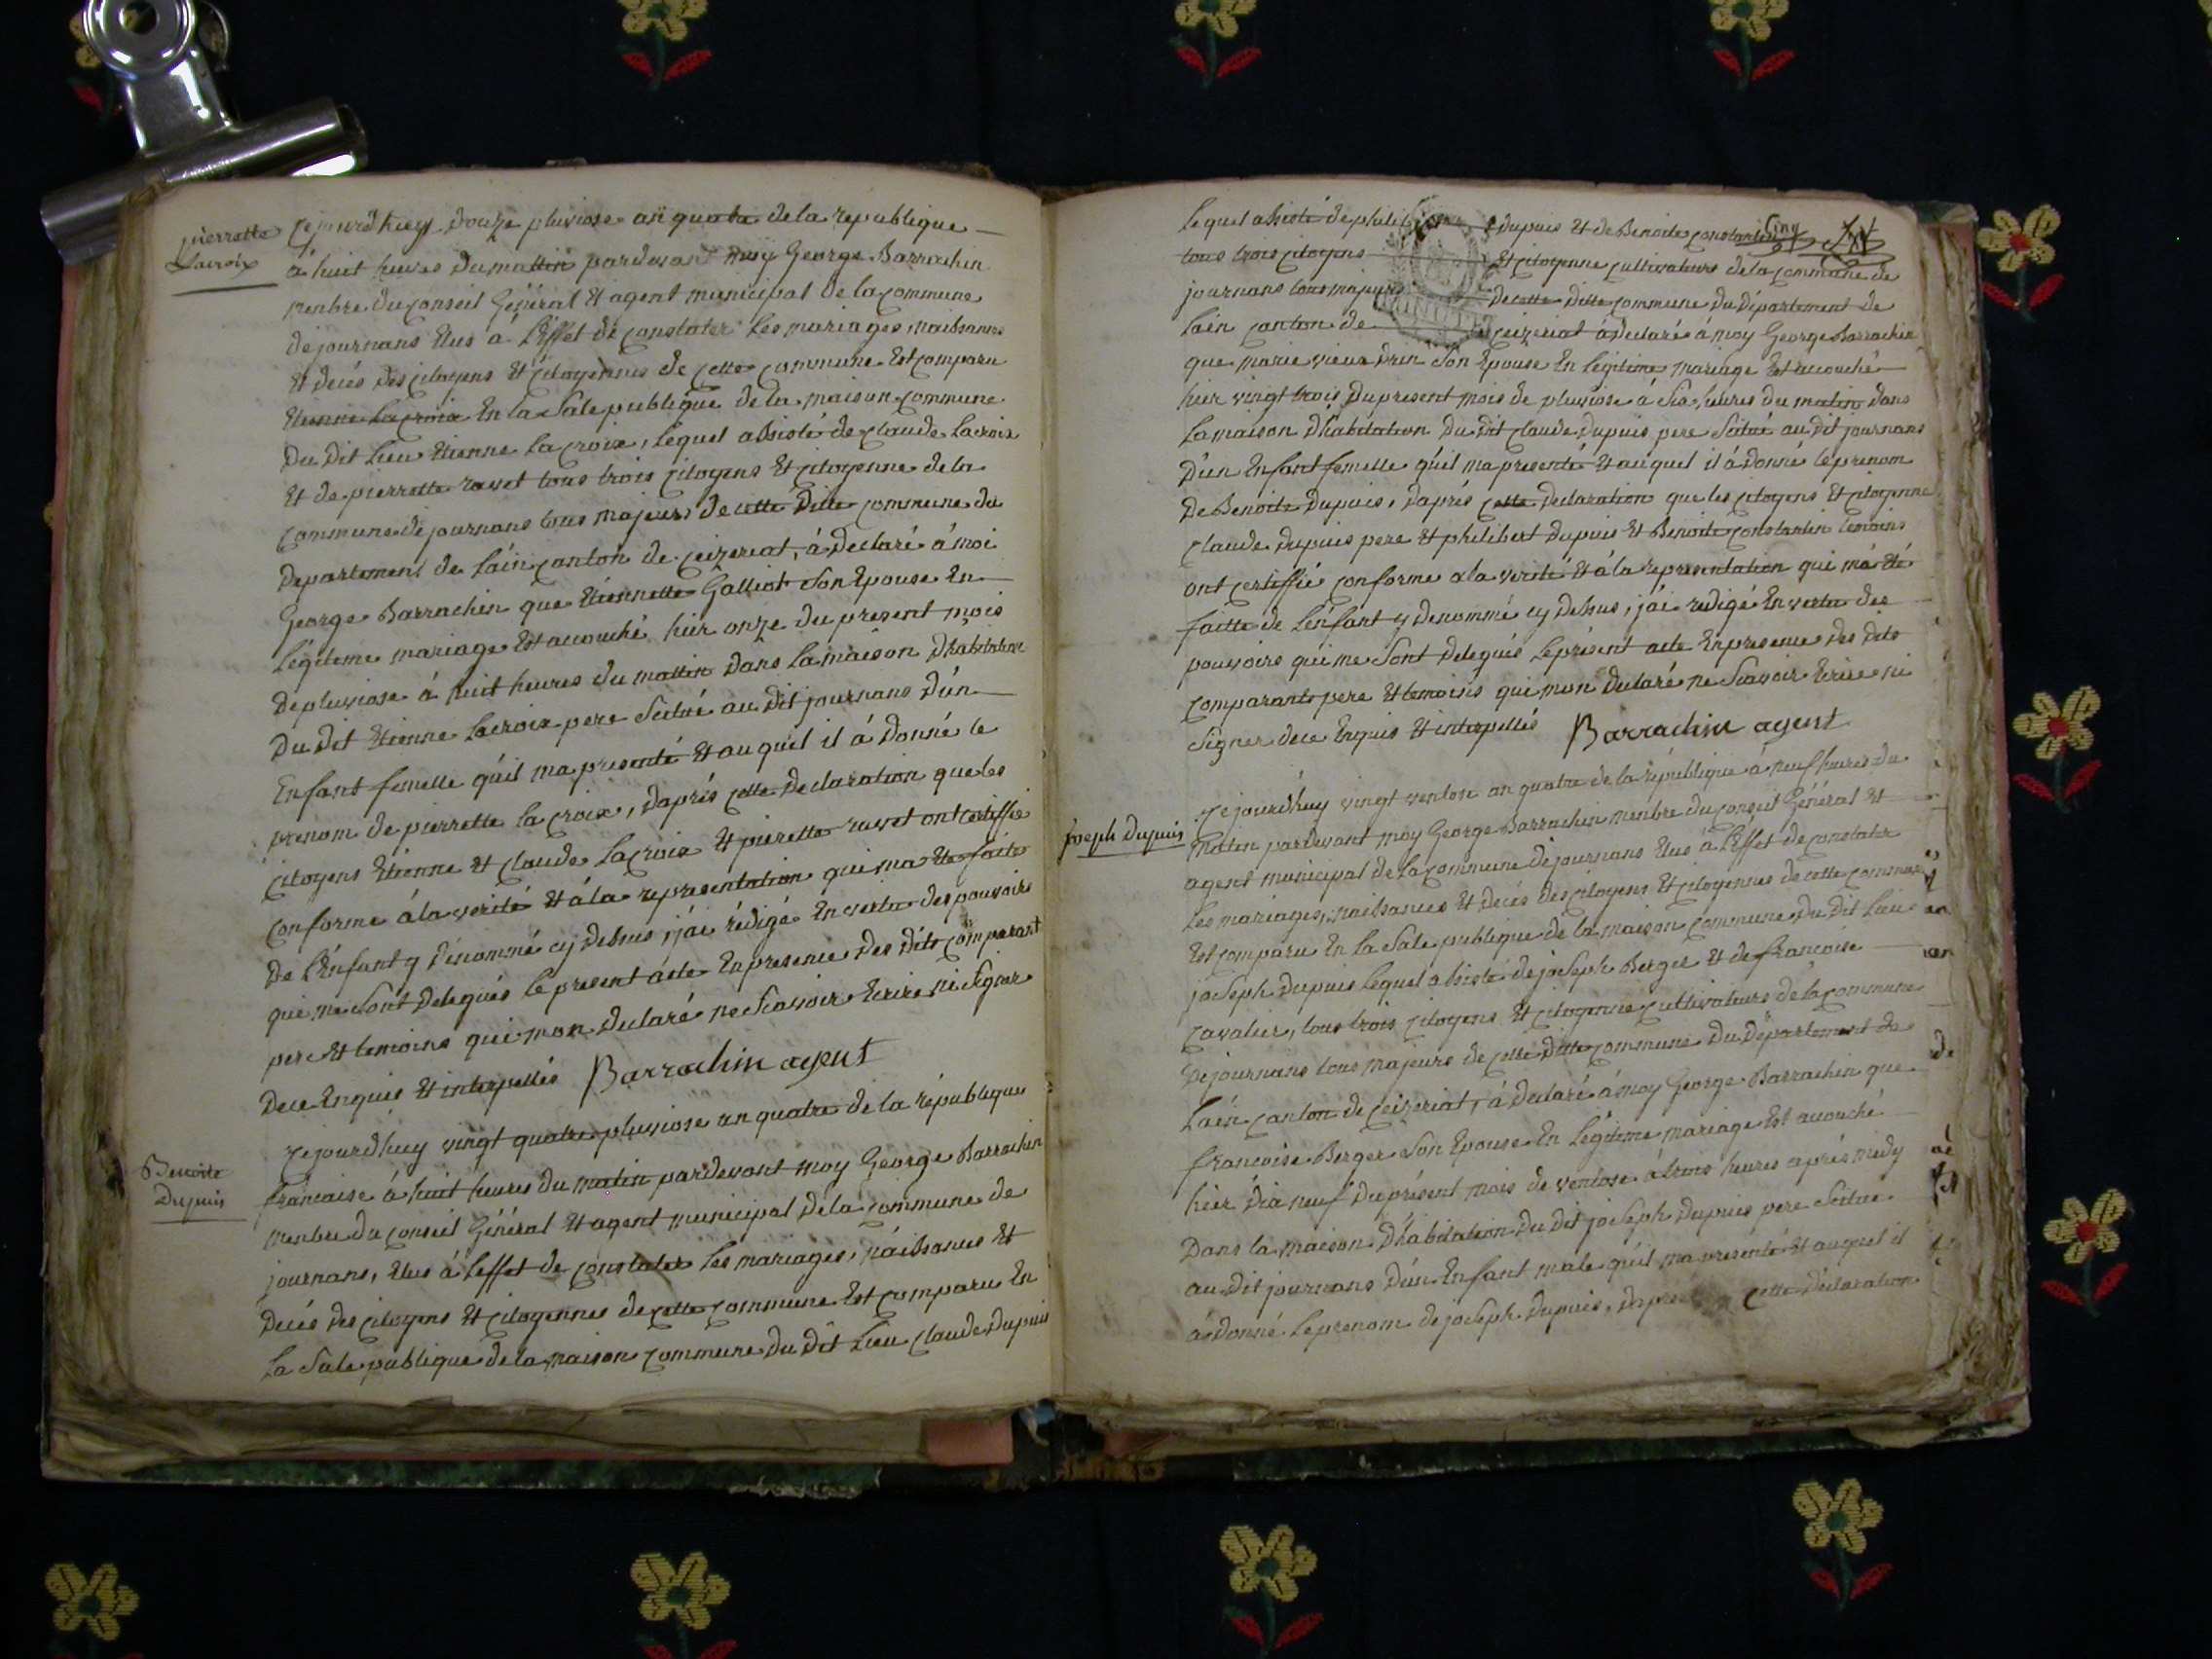 pierrette
Lacroix
Cejourdhuy douze pluviose an quatre de la republique
à huit heures du mattin pardevant moy George Barrachin
menbre du conseil Général Et agent municipal de la commune
de journans Elus a L'Effet de constater Les mariages, naissances
Et decés des citoyens Et citoyennes de cette commune Est comparu
Etienne Lacroix En la Sale publique de la maison commune
Du Dit Lieu Etienne la Croix, lequel assisté de claude Lacroix
Et de pierrette ravet tous trois citoyens Et citoyenne de la
commune de journans tous majeurs de cette Ditte commune du
Departement de L'ain canton de ceizeriat, à declaré à moi
George Barrachin que Etiennette Galliot Son Epouse En
Légiteme mariage Est accouché hier onze du present mois
de pluviose à huit heures du mattin Dans La maison D'habitation
Du Dit Etienne Lacroix pere Scitué au Dit journans D'un
Enfant femelle qu'il ma presenté Et au quel il à Donné le
prenom de pierrette la croix, Daprés cette Declaration que les
citoyens Etienne Et claude LaCroix Et pierette ravet ont certiffié
conforme à la verité Et à la representation qui ma Eté faite
De L'Enfant y Dénommé cy Dessus, j'ai rédigé En vertu des pouvoirs
qui me Sont Delegués le present acte En presence Des Dits comparant
pere Et temoins qui mon declaré ne Scavoir Ecrire ni Signer
Dece Enquis Et interpellés Barrachin agent
Benoite
Dupuis
Cejourdhuy vingt quatre pluviose an quatre de la république
francaise à huit heures du matin pardevant moy George Barrachin
menbre du conseil Général Et agent municipal de la commune de
journans, Elus à L'effet de constater Les mariages, náissances Et
Decés Des citoyens Et citoyennes de cette commune Est comparu En
La Sale publique de la maison commune Du Dit Lieu claude Dupuis
cinq
lequel assisté de philib Dupuis Et de Benoite constantin
tous trois citoyens Et citoyenne cultivateurs de la commune de
journans tous majeurs de cette Ditte commune Du Département de
Lain canton de ceizeriat à declaré à moy George Barrachin
que marie vieux Drin Son Epouse En Légiteme mariage Est accouché
hier vingt trois Du present mois de pluviose à Six heures du matin Dans
La maison D'habitation Du Dit claude Dupuis pere Scitué au Dit journans
D'un Enfant femelle qu'il ma presenté Et auquel il à donné le prenom
De Benoite Dupuis, Daprés cette Declaration que les citoyens Et citoyenne
claude Dupuis pere Et philibert Dupuis Et Benoite constantin temoins
ont certiffié conforme a la verité Et à la representation qui má Eté
faitte de L'enfant y denommé cy Dessus, j'ai redigé En vertu des
pouvoirs qui me Sont Delegués Leprésent acte En presence Des Dits
comparants pere Et temoins qui mon declaré ne Scavoir Ecrire ni
Signer dece Enquis Et interpellés Barrachin agent
joseph Dupuis
Cejourdhuy vingt ventose an quatre de la république à neuf heures du
matin pardevant moy George Barrachin menbre du conseil Général Et
agent municipal de la commune de journans Elus à L'Effet de constater
Les mariages, naissances Et decés des citoyens Et citoyennes de cette commune
Est comparu En la Sale publique de la maison commune Du Dit Lieu
joseph Dupuis Lequel assisté de joseph Berger Et de francoise
cavalier, tous trois citoyens Et citoyenne cultivateurs de la commune
De journans tous majeurs de cette Ditte commune Du Département de
Lain canton de ceizeriat, à declaré à moy George Barrachin que
francoise Berger Son Epouse En Légiteme mariage Est accouché
hier Dix neuf Du présent mois de ventose à trois heures aprés midy
Dans la maison D'habitation Du Dit joseph Dupuis pere Scitué
au Dit journans D'un Enfant male qu'il ma presenté Et auquel il
à donné Le prenom de joseph Dupuis, cette declaration